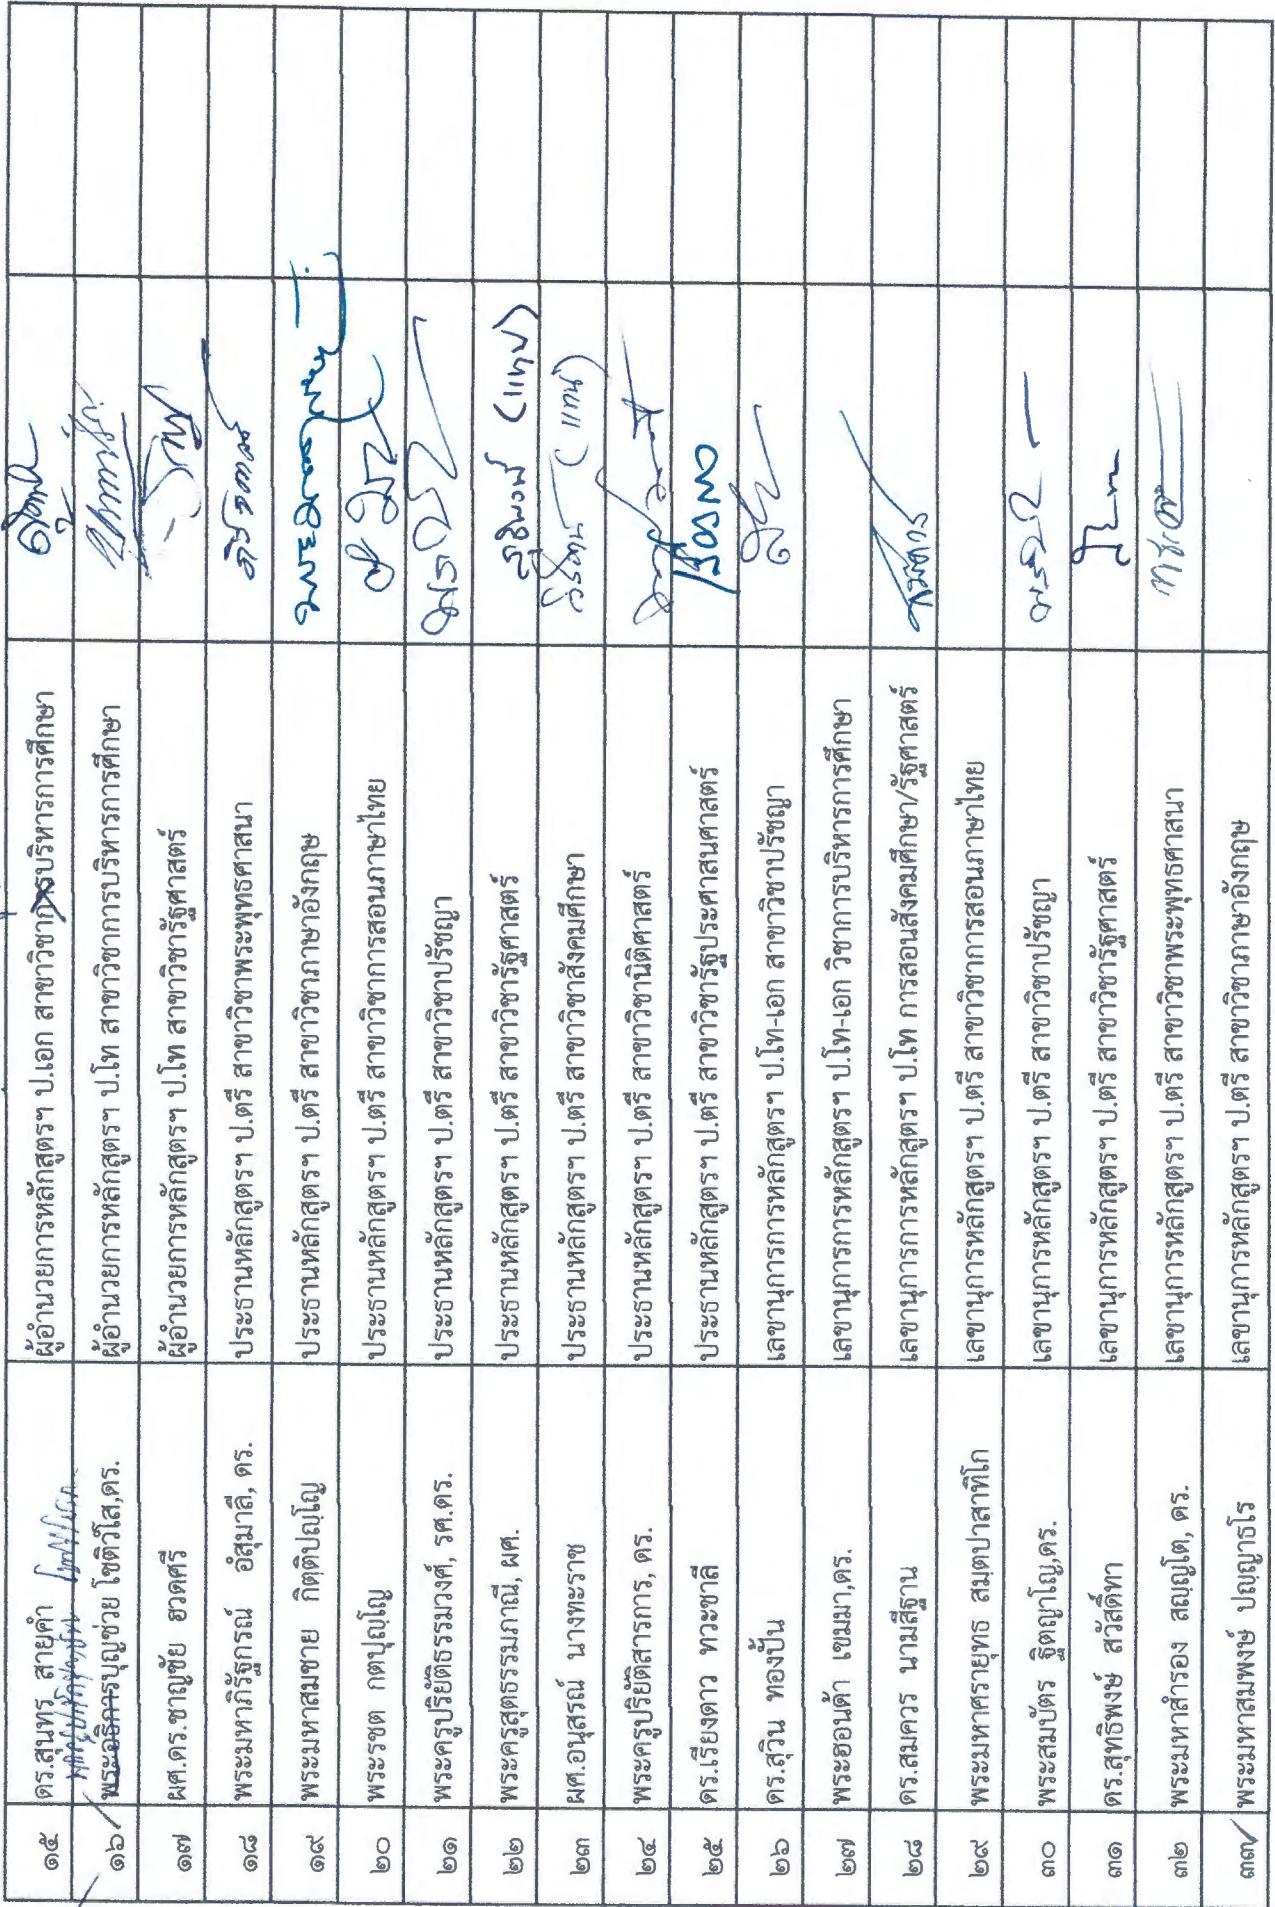 ๑๕ ดร.สุนทร สายคำ ผู้อำนวยการหลักสูตรฯ ป.เอก สาขาวิชาการบริหารการศึกษา
๑๖ พระอธิการบุญช่วย โชติวํโส,ดร. ผู้อำนวยการหลักสูตรฯ ป.โท สาขาวิชาการบริหารการศึกษา
๑๗ ผศ.ดร.ชาญชัย ฮวดศรี ผู้อำนวยการหลักสูตรฯ ป.โท สาขาวิชารัฐศาสตร์
๑๘ พระมหาภิรัฐกรณ์ อํสุมาลี, ดร. ประธานหลักสูตรฯ ป.ตรี สาขาวิชาพระพุทธศาสนา
๑๙ พระมหาสมชาย กิตฺติปญฺโญ ประธานหลักสูตรฯ ป.ตรี สาขาวิชาภาษาอังกฤษ
๒๐ พระรชต กตปุญฺโญ ประธานหลักสูตรฯ ป.ตรี สาขาวิชาการสอนภาษาไทย
๒๑ พระครูปริยัติธรรมวงศ์, รศ.ดร. ประธานหลักสูตรฯ ป.ตรี สาขาวิชาปรัชญา
๒๒ พระครูสุตธรรมภาณี, ผศ. ประธานหลักสูตรฯ ป.ตรี สาขาวิชารัฐศาสตร์ สุทธิพงษ์ (แทน)
๒๓ ผศ.อนุสรณ์ นางทะราช ประธานหลักสูตรฯ ป.ตรี สาขาวิชาสังคมศึกษา (แทน)
๒๔ พระครูปริยัติสารการ, ดร. ประธานหลักสูตรฯ ป.ตรี สาขาวิชานิติศาสตร์
๒๕ ดร.เรียงดาว ทวะชาลี ประธานหลักสูตรฯ ป.ตรี สาขาวิชารัฐประศาสนศาสตร์
๒๖ ดร.สุวิน ทองปั้น เลขานุการการหลักสูตรฯ ป.โท-เอก สาขาวิชาปรัชญา
๒๗ พระฮอนด้า เขมมา,ดร. เลขานุการการหลักสูตรฯ ป.โท-เอก วิชาการบริหารการศึกษา
๒๘ ดร.สมควร นามสีฐาน เลขานุการการหลักสูตรฯ ป.โท การสอนสังคมศึกษา/รัฐศาสตร์
๒๙ พระมหาศรายุทธ สมฺตปาสาทิโก เลขานุการหลักสูตรฯ ป.ตรี สาขาวิชาการสอนภาษาไทย
๓๐ พระสมบัตร ฐิตญาโญ,ดร. เลขานุการหลักสูตรฯ ป.ตรี สาขาวิชาปรัชญา
๓๑ ดร.สุทธิพงษ์ สวัสดิ์ทา เลขานุการหลักสูตรฯ ป.ตรี สาขาวิชารัฐศาสตร์
๓๒ พระมหาสำรอง สญฺญโต, ดร. เลขานุการหลักสูตรฯ ป.ตรี สาขาวิชาพระพุทธศาสนา
๓๓ พระมหาสมพงษ์ ปญฺญาธโร เลขานุการหลักสูตรฯ ป.ตรี สาขาวิชาภาษาอังกฤษ